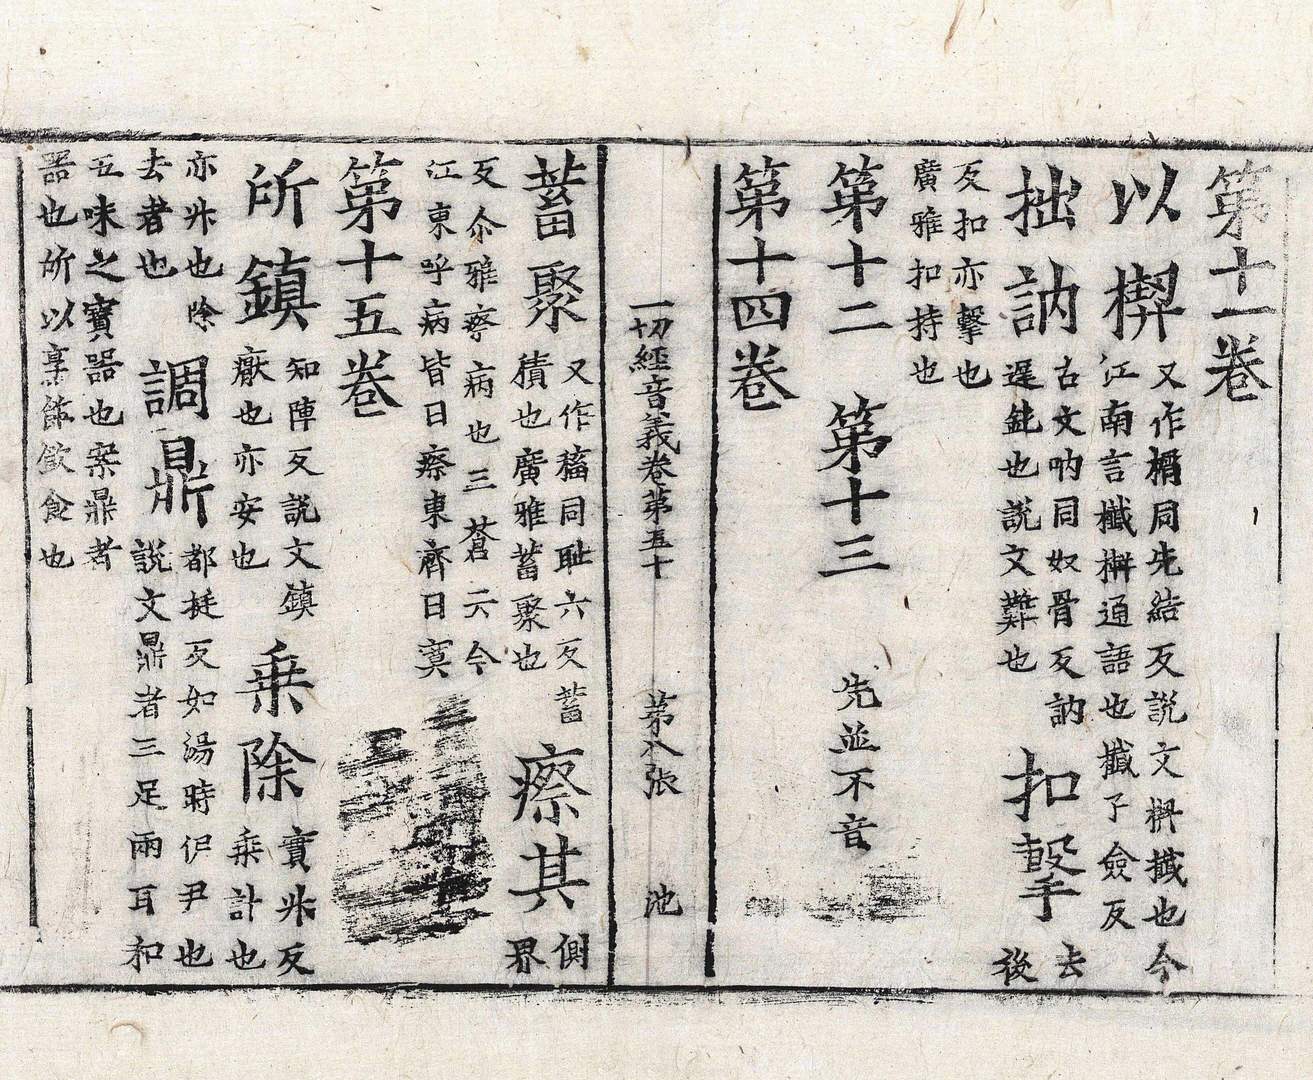 第十一卷
以楔又作楔同先結反說文楔櫼也今江南言櫼楔通語也櫼子僉反
拙訥古文吶同奴骨反訥遲鈍也說文難也扣擊去後
反扣亦擊也廣雅扣持也
第十二　第十三　先並不音
第十四卷
一切經音義卷第五十　第八張　池
蓄聚又作稸同恥六反蓄積也廣雅蓄聚也瘵其側界
反尒雅瘵病也三蒼云今江東呼病皆曰瘵東齊曰瘼
第十五卷
所鎮知陣反說文鎮厭也亦安也乘除實升反乘計也
亦升也除去者也調鼎都挺反如湯時伊尹也說文鼎者三足兩耳和
五味之寶器也案鼎者器也所以烹飪飲食也